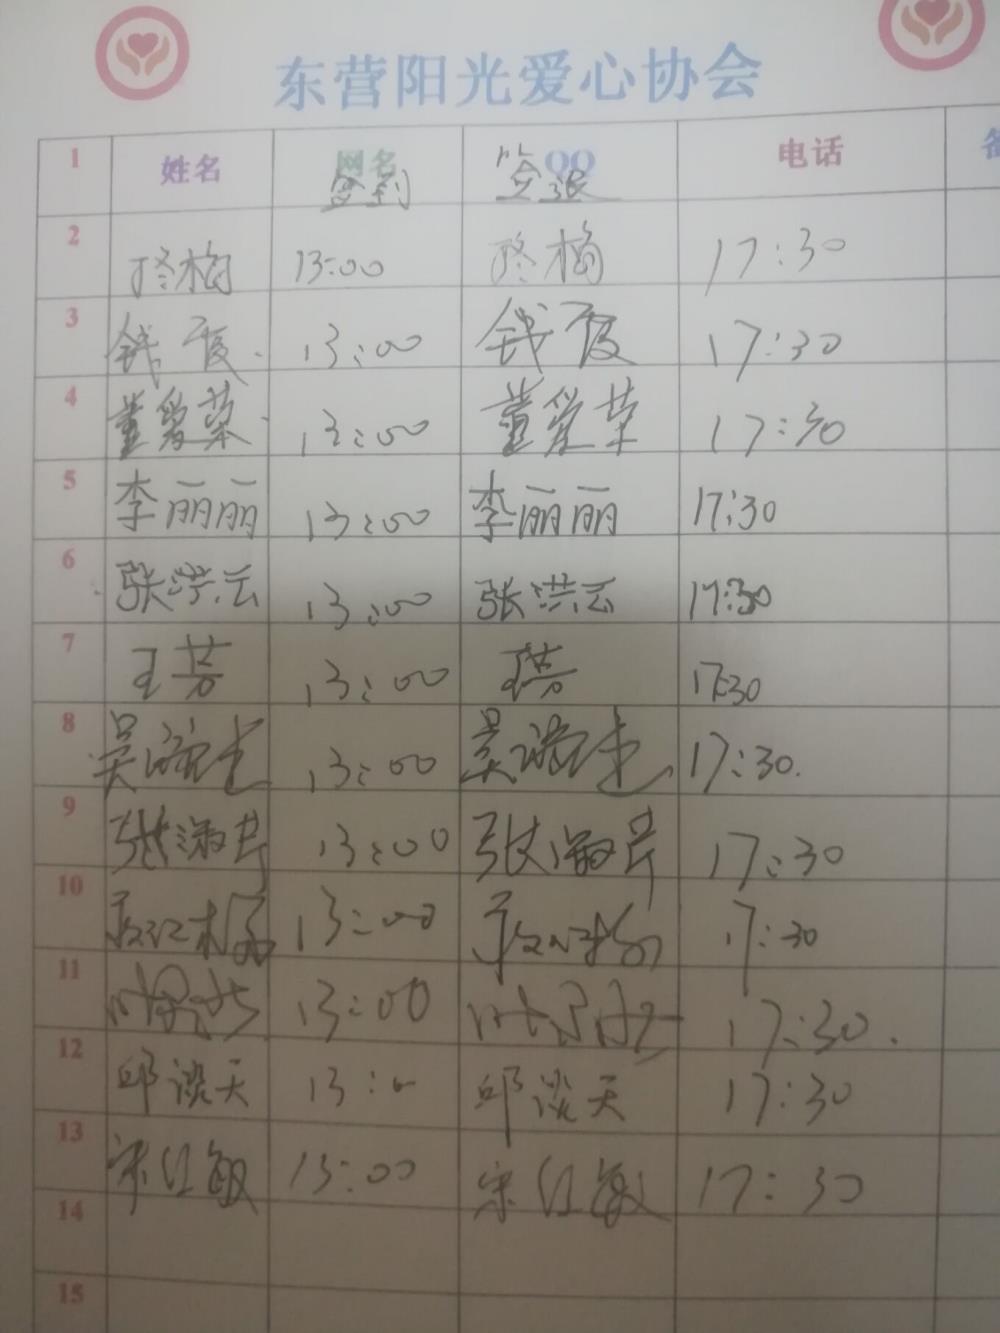 东营阳光爱心协会
1 姓名 网名 签到 QQ 签退 电话
2 佟梅 13:00 佟梅 17:30
3 钱霞 13:00 钱霞 17:30
4 董爱荣 13:00 董爱荣 17:30
5 李丽丽 13:00 李丽丽 17:30
6 张洪云 13:00 张洪云 17:30
7 王芳 13:00 王芳 17:30
8 吴 13:00 吴 17:30.
9 张淑芹 13:00 张淑芹 17:30
10 13:00 17:30
11 13:00 17:30.
12 邱谈天 13:0 邱谈天 17:30
13 宋红敏 13:00 宋红敏 17:30
14
15